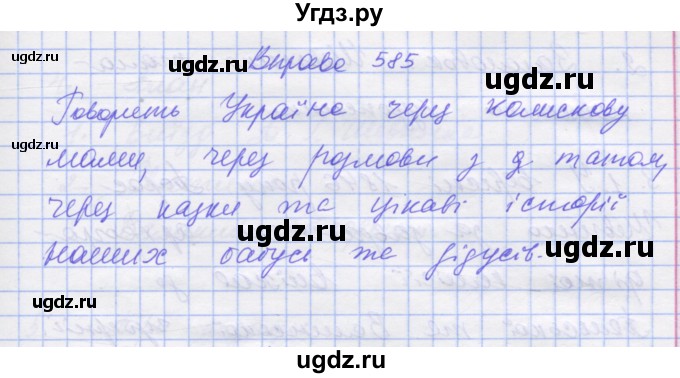 Угдз.ру
Вправа 585
Говорить Україна через колискову
мами, через розмови з д татом,
через казки та цікаві історії
наших бабусь та дідусів.
ugdz.ru
ugdz.ru
ugdz.ru
ugdz.ru
ugdz.ru
ugdz.ru
ugdz.ru
ugdz.ru
ugdz.ru
ugdz.ru
ugdz.ru